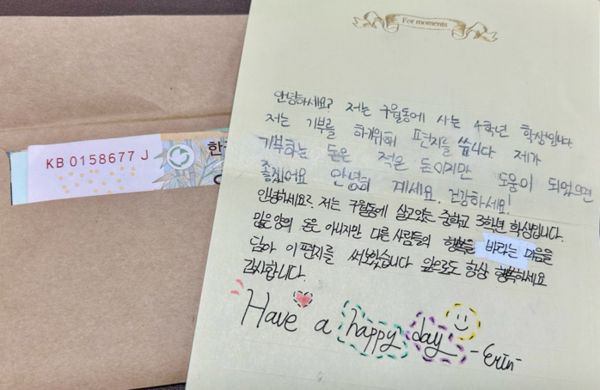 For moments
안녕하세요? 저는 구월동에 사는 4학년 학생입니다
저는 기부를 하기위해 편지를 씁니다 제가
기부하는 돈은 적은 돈이지만 도움이 되었으면
좋겠어요 안녕히 계세요. 건강하세요!
안녕하세요? 저는 구월동에 살고있는 중학교 3학년 학생입니다.
많은양의 돈은 아니지만 다른 사람들의 행복을 바라는 마음을
담아 이 편지를 써보았습니다 앞으로도 항상 행복하세요
감사합니다.
Have a happy day -Erin-
KB 0158677 J
한